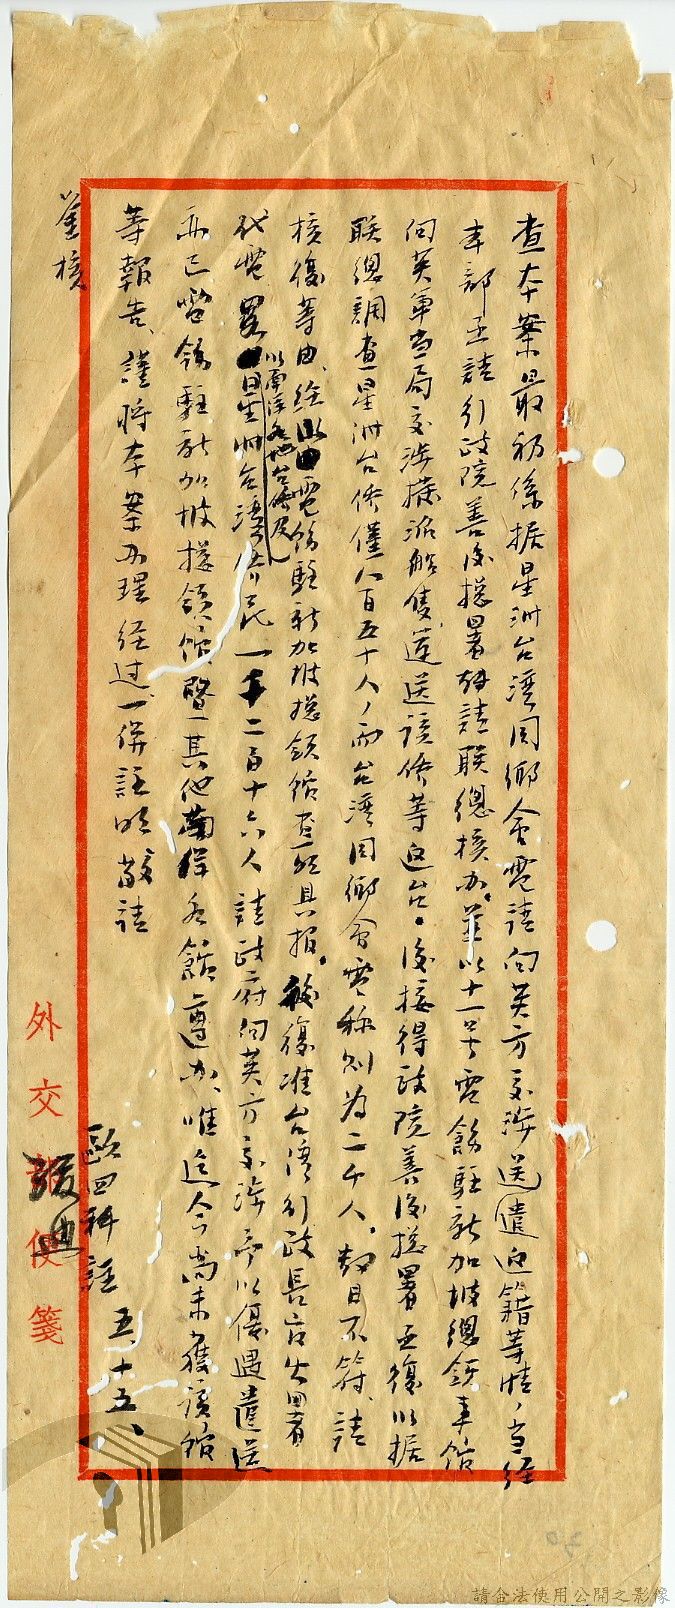 查本案最初係据星洲台湾同鄉會電請向英方交涉送遣返籍等情，当経
本部函請行政院善後総署转請联總核办，並以十一号電飭駐新加坡總領事館
向英軍当局交涉撥派船隻遣送該侨等返台。後接得政院善後総署函復以据
联總調查星洲台侨僅八百五十人，而台湾同鄉會電称则为二千人，数目不符，請
核復等由，経電飭駐新加坡総領館查明具报。復准台湾行政長官公署
代電
以南洋各地台侨及
星洲台湾侨民一千二百十六人請政府向英方交涉予以優遇遣送
亦已電飭駐新加坡総領館暨其他南洋各館遵办，唯迄今尚未獲該館
等報告，謹将本案办理経过一併註明敬請
鉴核
歐四科註 五、十五、
外交部便箋
請合法使用公開之影像